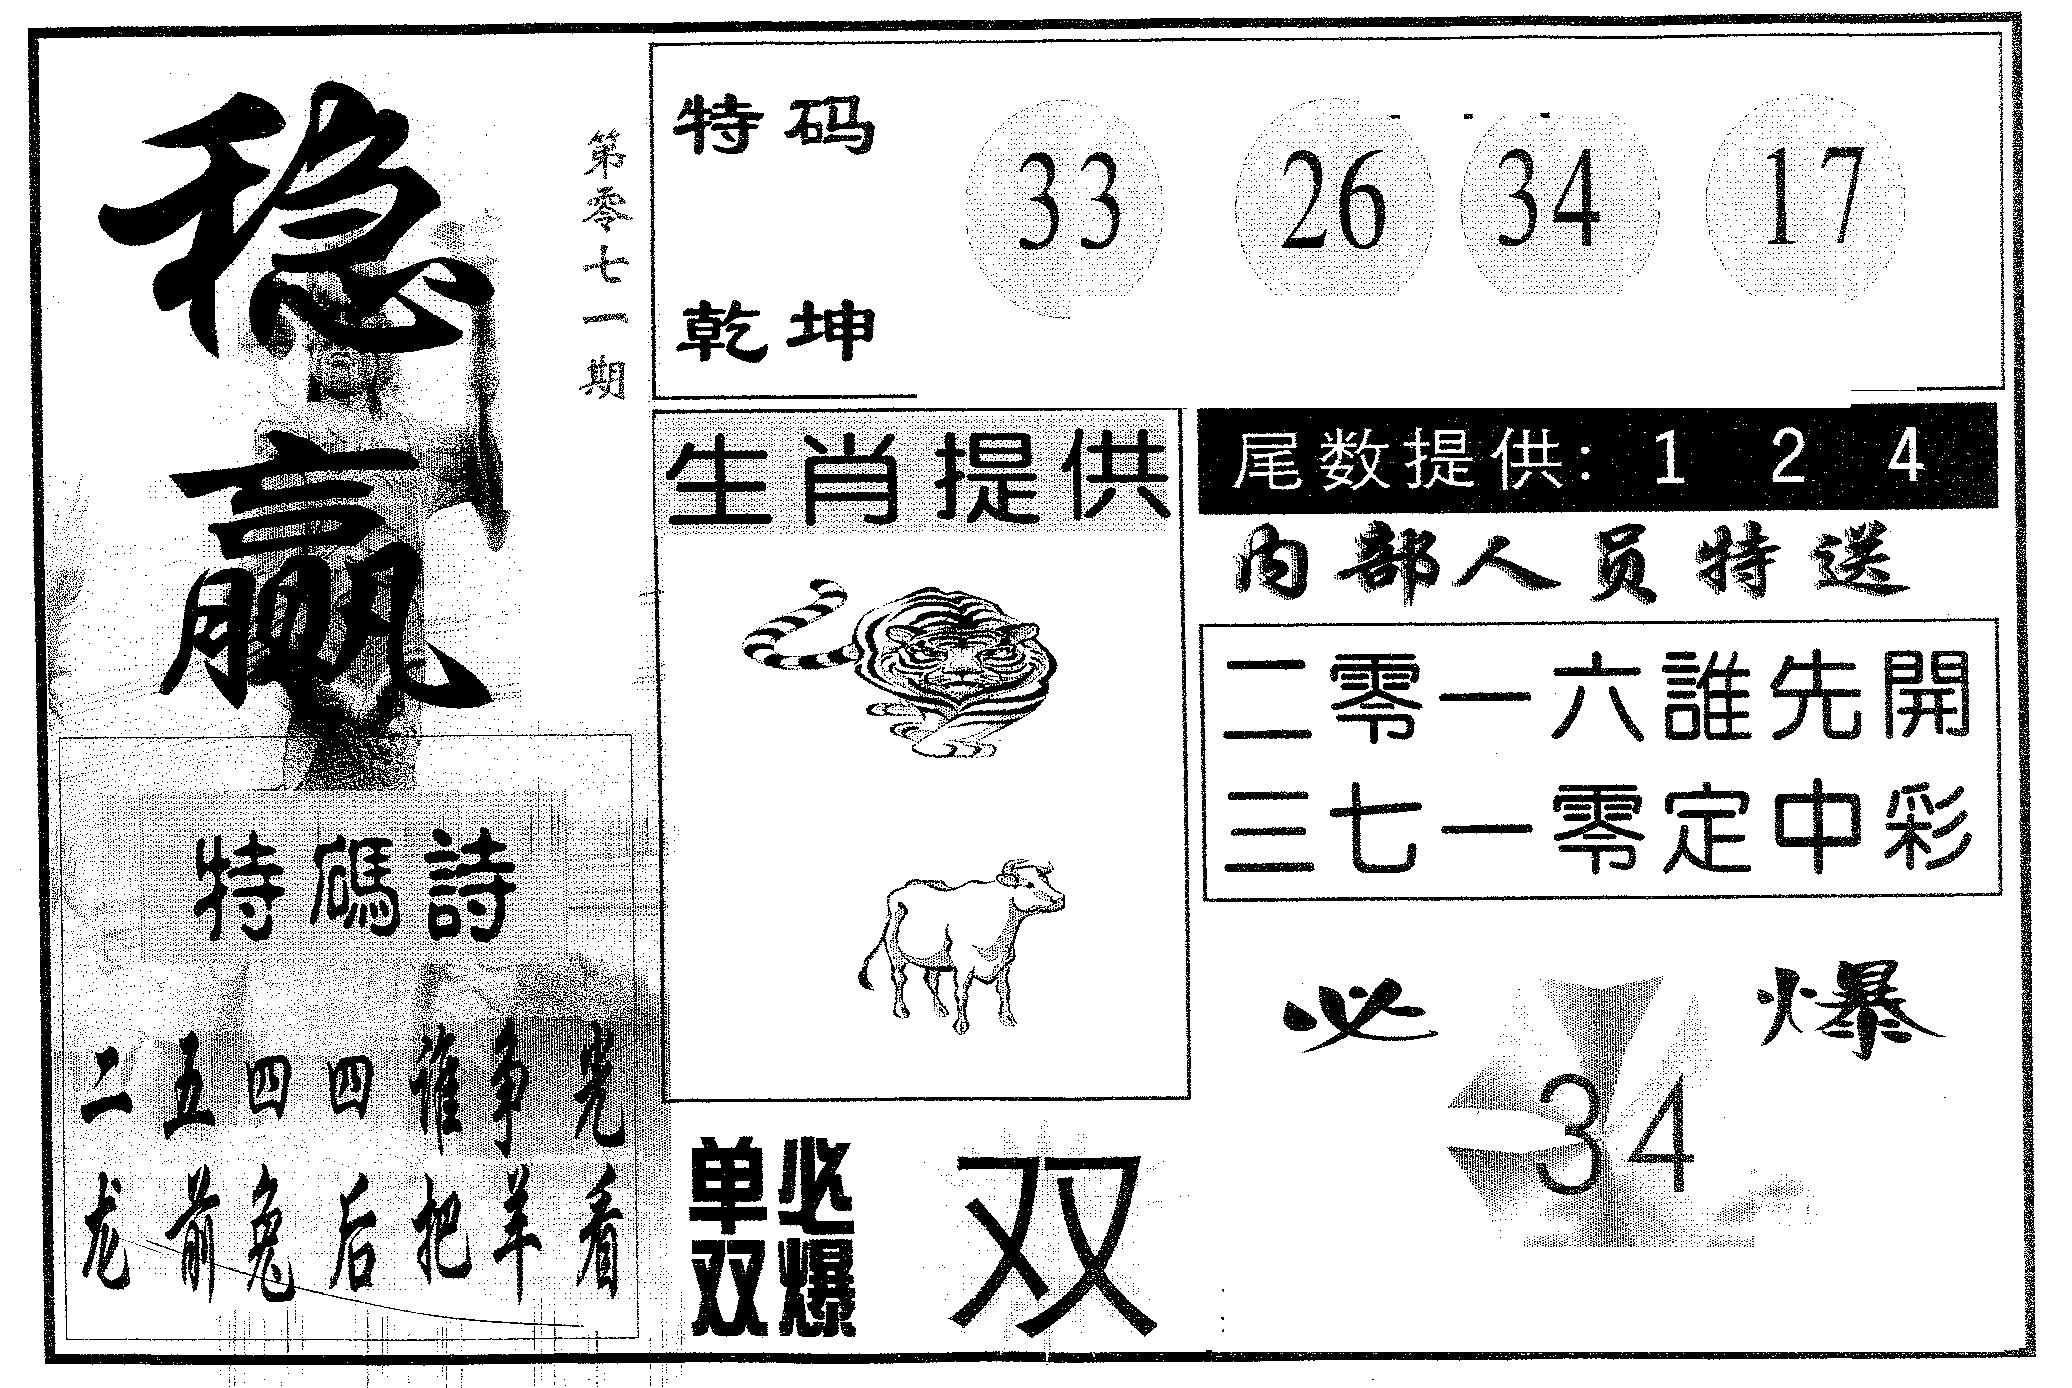 稳赢
第零七一期
特码
乾坤
33 26 34 17
生肖提供
尾数提供: 1 2 4
内部人员特送
二零一六誰先開
三七一零定中彩
特碼詩
二五四四谁争光
龙前兔后把羊看
单双
必爆
双
必爆
34